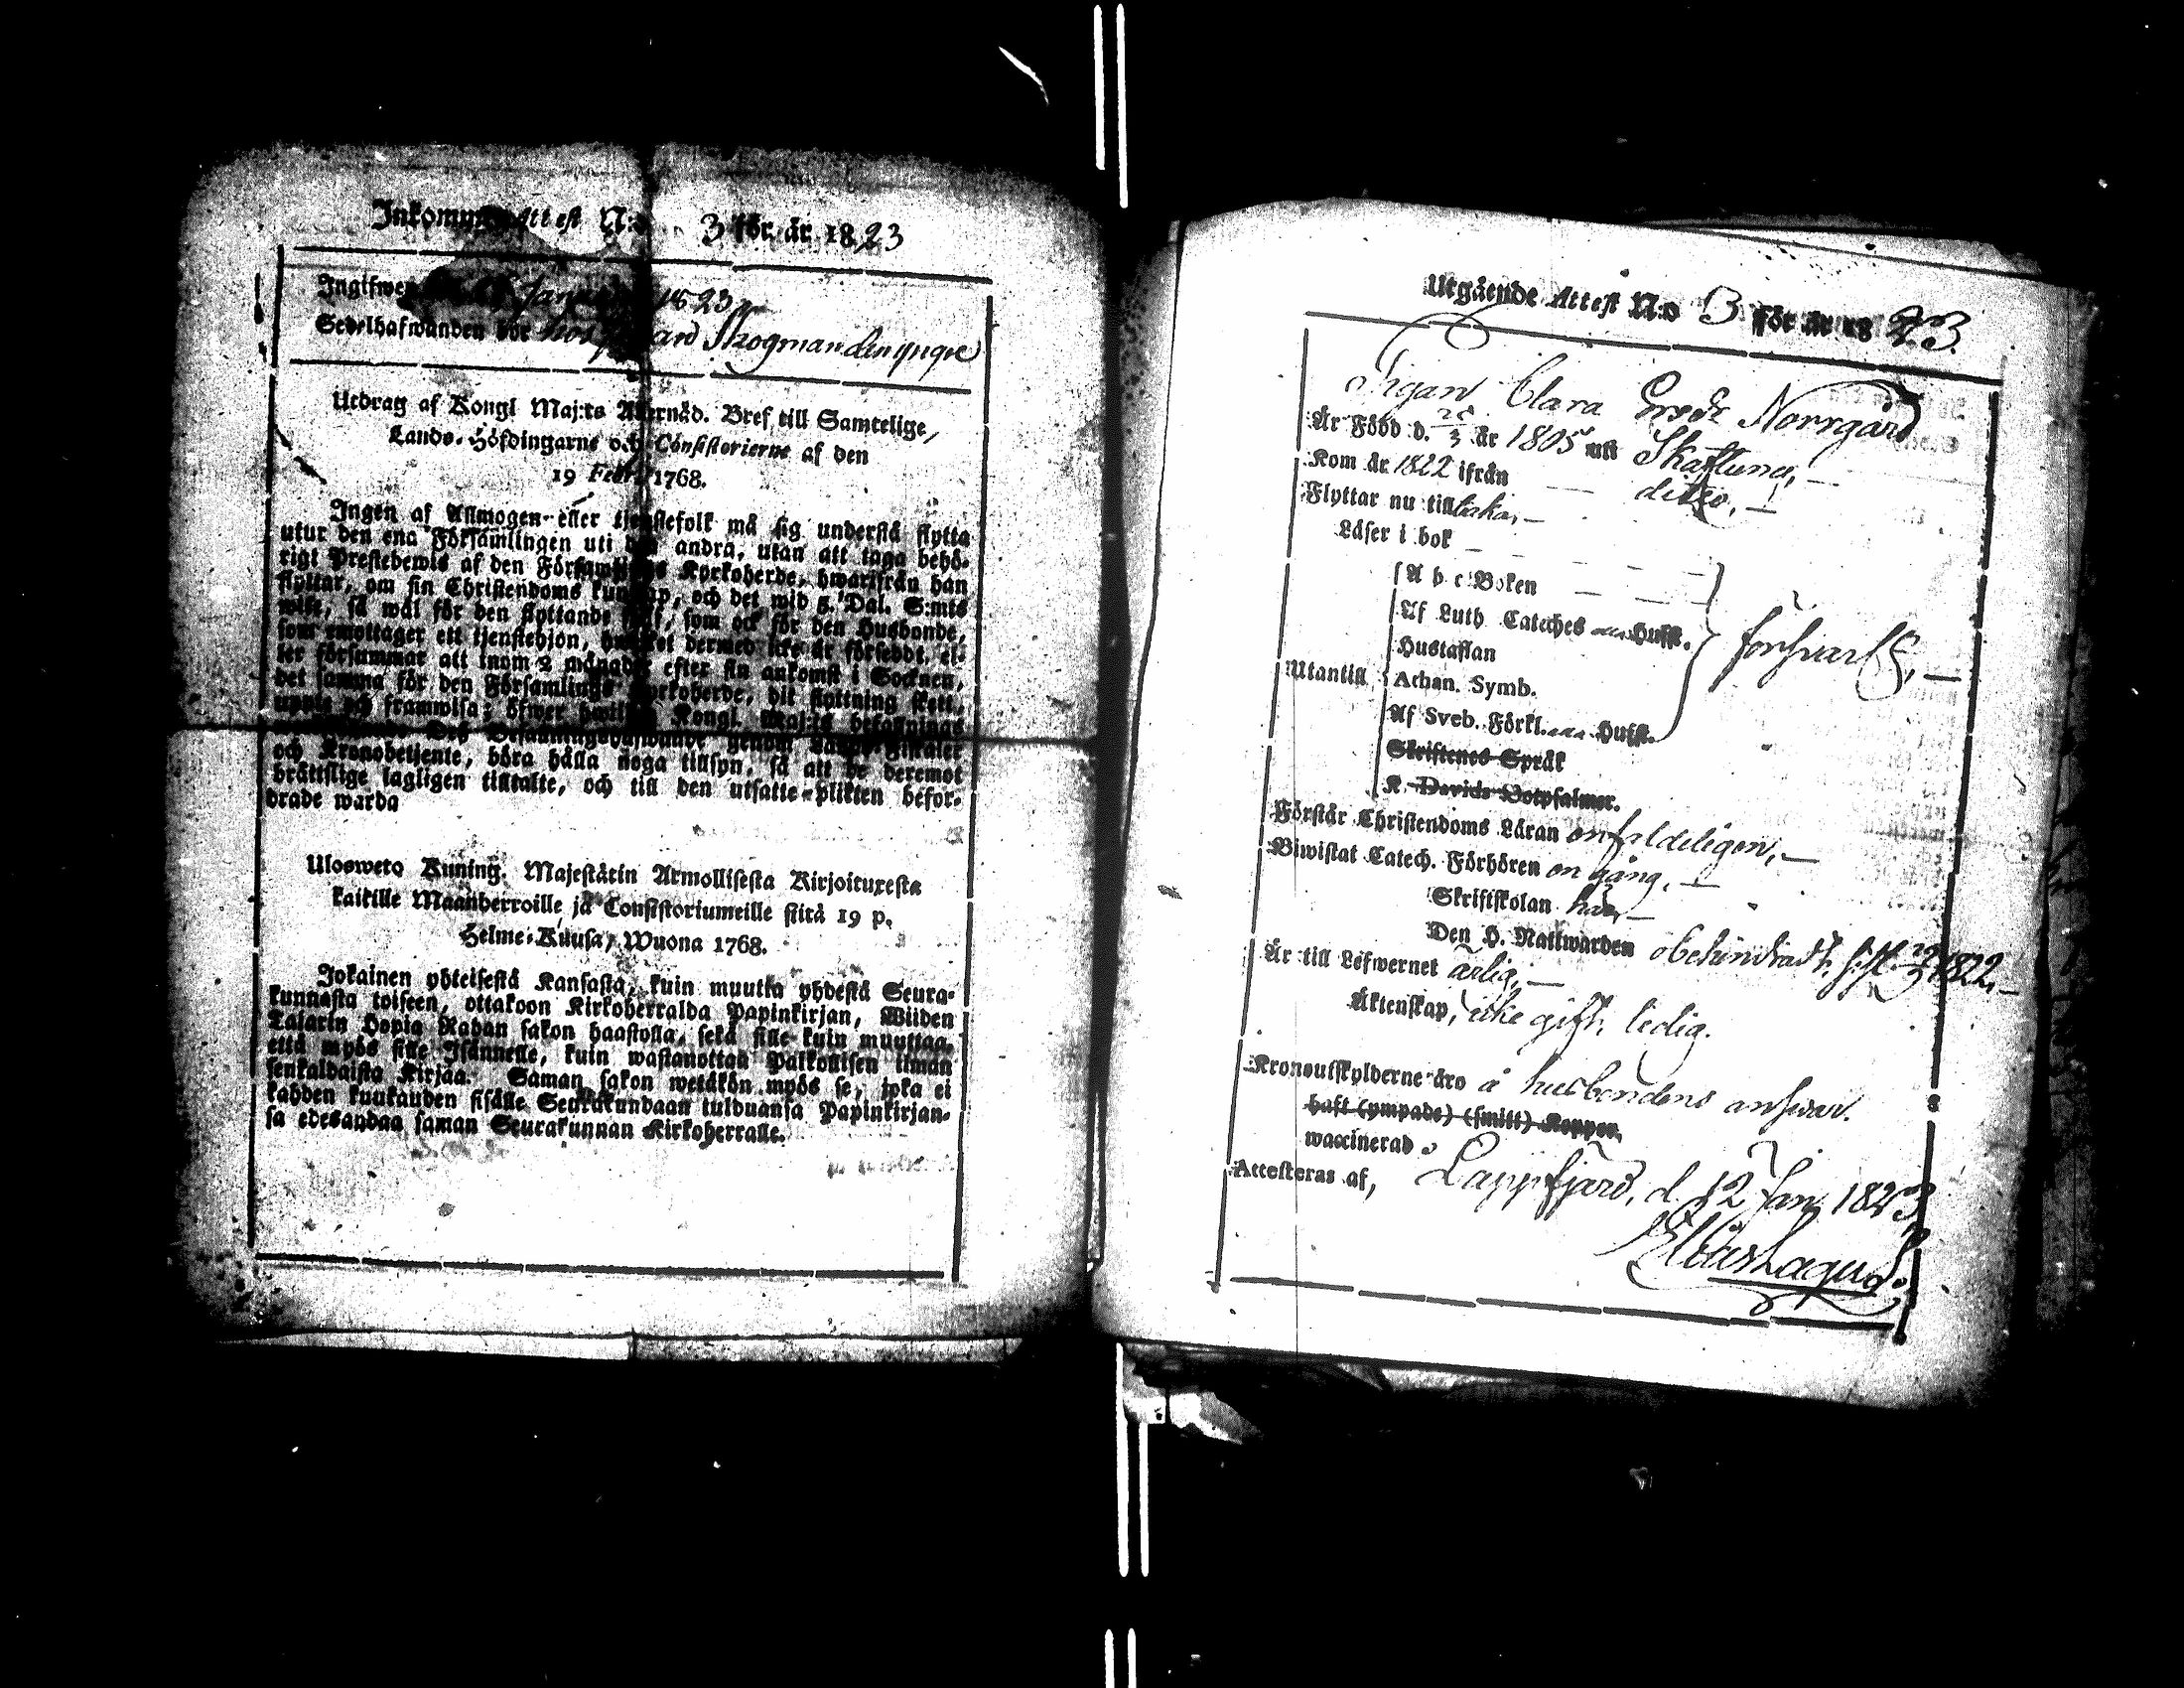 Inkomm Attest N:o 3 för år 1823
Ingifwen Januari 1823
Sedelhafwanden bor hos Skogman den yngre
Utdrag af Kongl Maj:ts Allernåd. Bref till Samtelige,
Lands-Höfdingarne och Consistorierne af den
19 Febr. 1768.
Ingen af Allmogen eller tjenstefolk må sig understå flytta
utur den ena Församlingen uti den andra, utan att taga behö-
rigt Prestebewis af den Församlings Kyrkoherde, hwarifrån han
flyttar, om sin Christendoms kunskap, och det wid 5. Dal. S:mts
wite, så wäl för den flyttande sjelf, som ock för den Husbonde,
som emottager ett tjenstehjon, hwilket dermed icke är försedt, el-
ler försummar att inom 2 månader efter sin ankomst i Socknen,
det samma för den Församlings Kyrkoherde, dit flyttning skett,
upete och framwisa; öfwer hwilket Kongl. Maj:ts befallnings
Des Befallningshafwande genom Lands-Fiskaler
och Kronobetjente, böra hålla noga tillsyn, så att de deremot
bråttslige lagligen tilltalte, och till den utsatte plikten befor-
drade warda
Ulosweto Kuning. Majestätin Armollisesta Kirjoituxesta
kaikille Maanherroille ja Consistoriumeille siitä 19 p.
Helme-Kuusa, Wuona 1768.
Jokainen yhteisestä Kansasta, kuin muutta yhdestä Seura-
kunnasta toiseen, ottakoon Kirkoherralda Papinkirjan, Wiiden
Talarin Hopia Rahan sakon haastolla, sekä sille kuin muuttaa,
että myös sille Isännelle, kuin wastanottaa Palkollisen ilman
senkaldaista Kirjaa. Saman sakon wetäkön myös se, joka ei
kahden kuukauden sisälle Seurakundaan tulduansa Papinkirjan-
sa edesandaa saman Seurakunnan Kirkoherralle.
Utgående Attest N:o 3 för år 1823.
Pigan Clara Ersdr Norrgård
Är Född d. 28/3 år 1805 uti Skaftung,
Kom år 1822 ifrån ditto,
Flyttar nu till
Läser i bok
A b c Boken
Af Luth Cateches Husst.
Hustaflan
Utantill
Athan. Symb.
Af Sveb. Förkl. Husst.
försvarl.,
Skriftenes Språk
K. Davids Botpsalmer.
Förstår Christendoms Läran enfaldeligen,
Biwistat Catech. Förhören en gång,
Skriftskolan har,
Den H. Nattwarden obehindrad, sist 1822,
Är till Lefwernet ärlig,
Äktenskap, icke gift, ledig.
Kronoutskylderne äro å husbondens answar.
haft (ympade) (smitt) Koppor,
waccinerad
Attesteras af, Lappfjärd, d. 12 Jan. 1823
Elias Lagus.